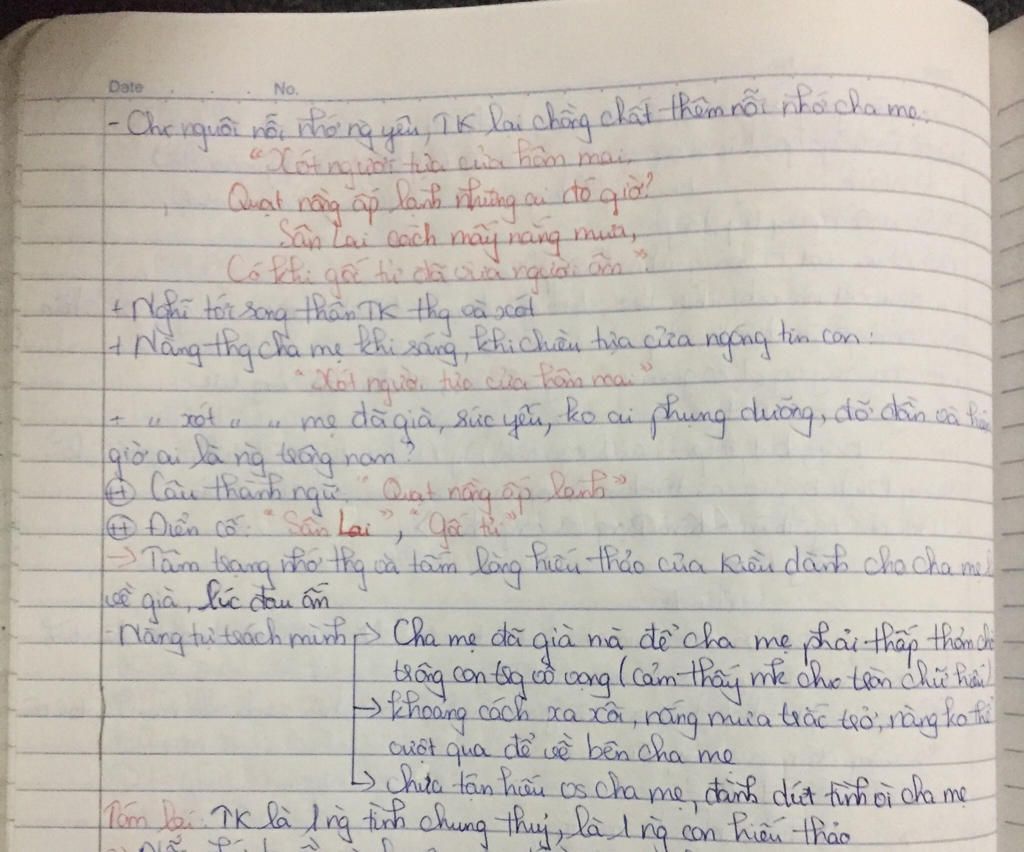 Date . . . No.
- Chưa nguôi nỗi nhớ ng yêu, TK lại chồng chất thêm nỗi nhớ cha mẹ:
"Xót người tựa cửa hôm mai,
Quạt nồng ấp lạnh những ai đó giờ?
Sân Lai cách mấy nắng mưa,
Có khi gốc tử đã vừa người ôm"
+ Nghĩ tới song thân TK thg và xót
+ Nàng thg cha mẹ khi sáng, khi chiều tựa cửa ngóng tin con:
"Xót người tựa cửa hôm mai"
+ " xót " " mẹ đã già, sức yếu, ko ai phụng dưỡng, đỡ đần và
giờ ai là ng trông nom?
++ Câu thành ngữ: "Quạt nồng ấp lạnh"
++ Điển cố: "Sân Lai", "Gốc tử"
→ Tâm trạng nhớ thg và tấm lòng hiếu thảo của Kiều dành cho cha mẹ
về già, lúc đau ốm
- Nàng tự trách mình → Cha mẹ đã già mà để cha mẹ phải thấp thỏm
trông con trg vô vọng (cảm thấy mk chưa tròn chữ hiếu)
→ khoảng cách xa xôi, nắng mưa trắc trở, nàng ko thể
vượt qua để về bên cha mẹ
→ chưa tận hiếu vs cha mẹ, đành dứt tình vì cha mẹ
Tóm lại: TK là 1 ng tình chung thuỷ, là 1 ng con hiếu thảo